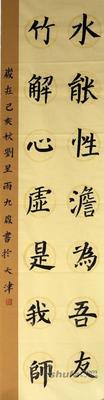 水能性澹為吾友
竹解心虛是我師
歲在己亥秋劉雨九歲書於天津